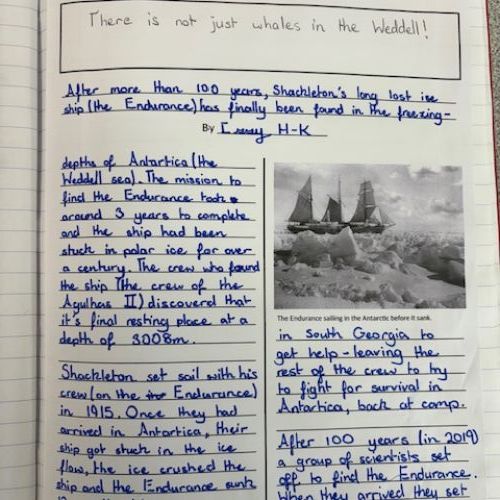 There is not just whales in the Weddell!
After more than 100 years, Shackleton's long lost ice
ship (the Endurance) has finally been found in the freezing-
By H-K
depths of Antartica (the
Weddell sea). The mission to
find the Endurance took
around 3 years to complete
and the ship had been
stuck in polar ice for over
a century. The crew who found
the ship (the crew of the
Agulhas II) discoverd that
it's final resting place at a
depth of 3008m.
Shackleton set sail with his
crew (on the Endurance)
in 1915. Once they had
arrived in Antartica, their
ship got stuck in the ice
flow, the ice crushed the
ship and the Endurance sunk
The Endurance sailing in the Antarctic before it sank.
in South Georgia to
get help - leaving the
rest of the crew to try
to fight for survival in
Antartica, back at camp.
After 100 years (in 2019)
a group of scientists set
off to find the Endurance.
When they arrived they set